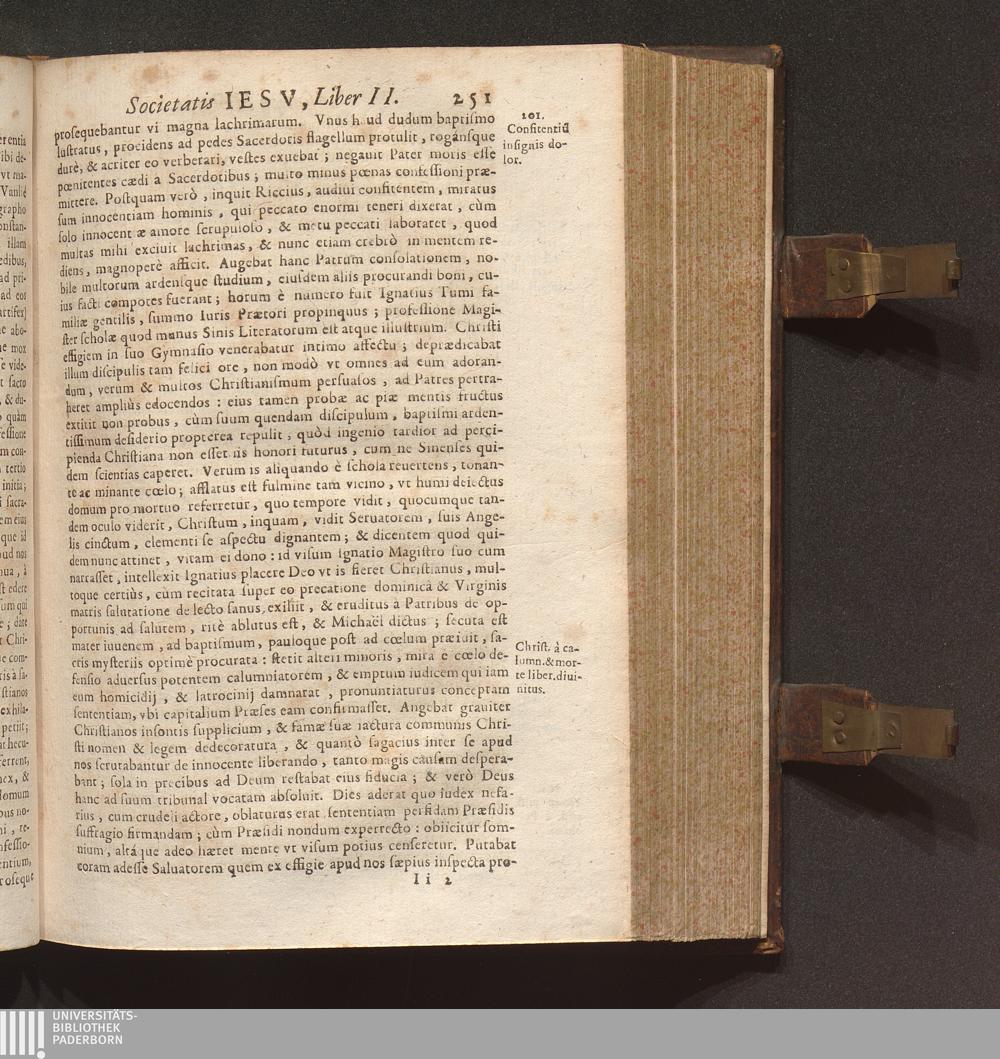 Societatis IESV, Liber II. 251
prosequebantur vi magna lachrimarum. Vnus haud dudum baptismo
lustratus, procidens ad pedes Sacerdotis flagellum protulit, rogánsque
durè, & acriter eo verberari, vestes exuebat; negauit Pater moris esse
pœnitentes cædi à Sacerdotibus; multo minus pœnas confessioni præ-
mittere. Postquam verò, inquit Riccius, audiui confitentem, miratus
sum innocentiam hominis, qui peccato enormi teneri dixerat, cùm
solo innocentiæ amore scrupuloso, & metu peccati laboraret, quod
multas mihi exciuit lachrimas, & nunc etiam crebrò in mentem re-
diens, magnoperè afficit. Augebat hanc Patrum consolationem, no-
bile multorum ardensque studium, eiusdem aliis procurandi boni, cu-
ius facti compotes fuerant; horum è numero fuit Ignatius Tumi fa-
miliæ gentilis, summo Iuris Prætori propinquus; professione Magi-
ster scholæ quod munus Sinis Literatorum est atque illustrium. Christi
effigiem in suo Gymnasio venerabatur intimo affectu; deprædicabat
illum discipulis tam felici ore, non modò vt omnes ad eum adoran-
dum, verum & multos Christianismum persuasos, ad Patres pertra-
heret ampliùs edocendos: eius tamen probæ ac piæ mentis fructus
extitit non probus, cùm suum quendam discipulum, baptismi arden-
tissimum desiderio propterea repulit, quòd ingenio tardior ad perci-
pienda Christiana non esset iis honori futurus, cum ne Sinenses qui-
dem scientias caperet. Verum is aliquando è schola reuertens, tonan-
te ac minante cœlo; afflatus est fulmine tam vicino, vt humi deiectus
domum pro mortuo referretur, quo tempore vidit, quocumque tan-
dem oculo viderit, Christum, inquam, vidit Seruatorem, suis Ange-
lis cinctum, clementi se aspectu dignantem; & dicentem quod qui-
dem nunc attinet, vitam ei dono: id visum Ignatio Magistro suo cum
narrasset, intellexit Ignatius placere Deo vt is fieret Christianus, mul-
toque certiùs, cùm recitata super eo precatione dominicâ & Virginis
matris salutatione de lecto sanus, exiliit, & eruditus à Patribus de op-
portunis ad salutem, ritè ablutus est, & Michaël dictus; secuta est
mater iuuenem, ad baptismum, pauloque post ad cœlum præiuit, sa-
cris mysteriis optimè procurata: stetit alteri minoris, mira è cœlo de-
fensio aduersus potentem calumniatorem, & emptum iudicem qui iam
eum homicidij, & latrocinij damnarat, pronuntiaturus conceptam
sententiam, vbi capitalium Præses eam confirmasset. Angebat grauiter
Christianos insontis supplicium, & famæ suæ iactura communis Chri-
sti nomen & legem dedecoratura, & quantò sagacius inter se apud
nos scrutabantur de innocente liberando, tanto magis causam despera-
bant; sola in precibus ad Deum restabat eius fiducia; & verò Deus
hanc ad suum tribunal vocatam absoluit. Dies aderat quo iudex nefa-
rius, cum crudeli actore, oblaturus erat sententiam perfidam Præsidis
suffragio firmandam; cùm Præsidi nondum experrecto: obiicitur som-
nium, altáque adeo hæret mente vt visum potius censeretur. Putabat
coram adesse Saluatorem quem ex effigie apud nos sæpius inspecta pro-
Ii 2
101.
Confitentiũ
insignis do-
lor.
Christ. à ca-
lumn. & mor-
te liber. diui-
nitus.
UNIVERSITÄTS-
BIBLIOTHEK
PADERBORN